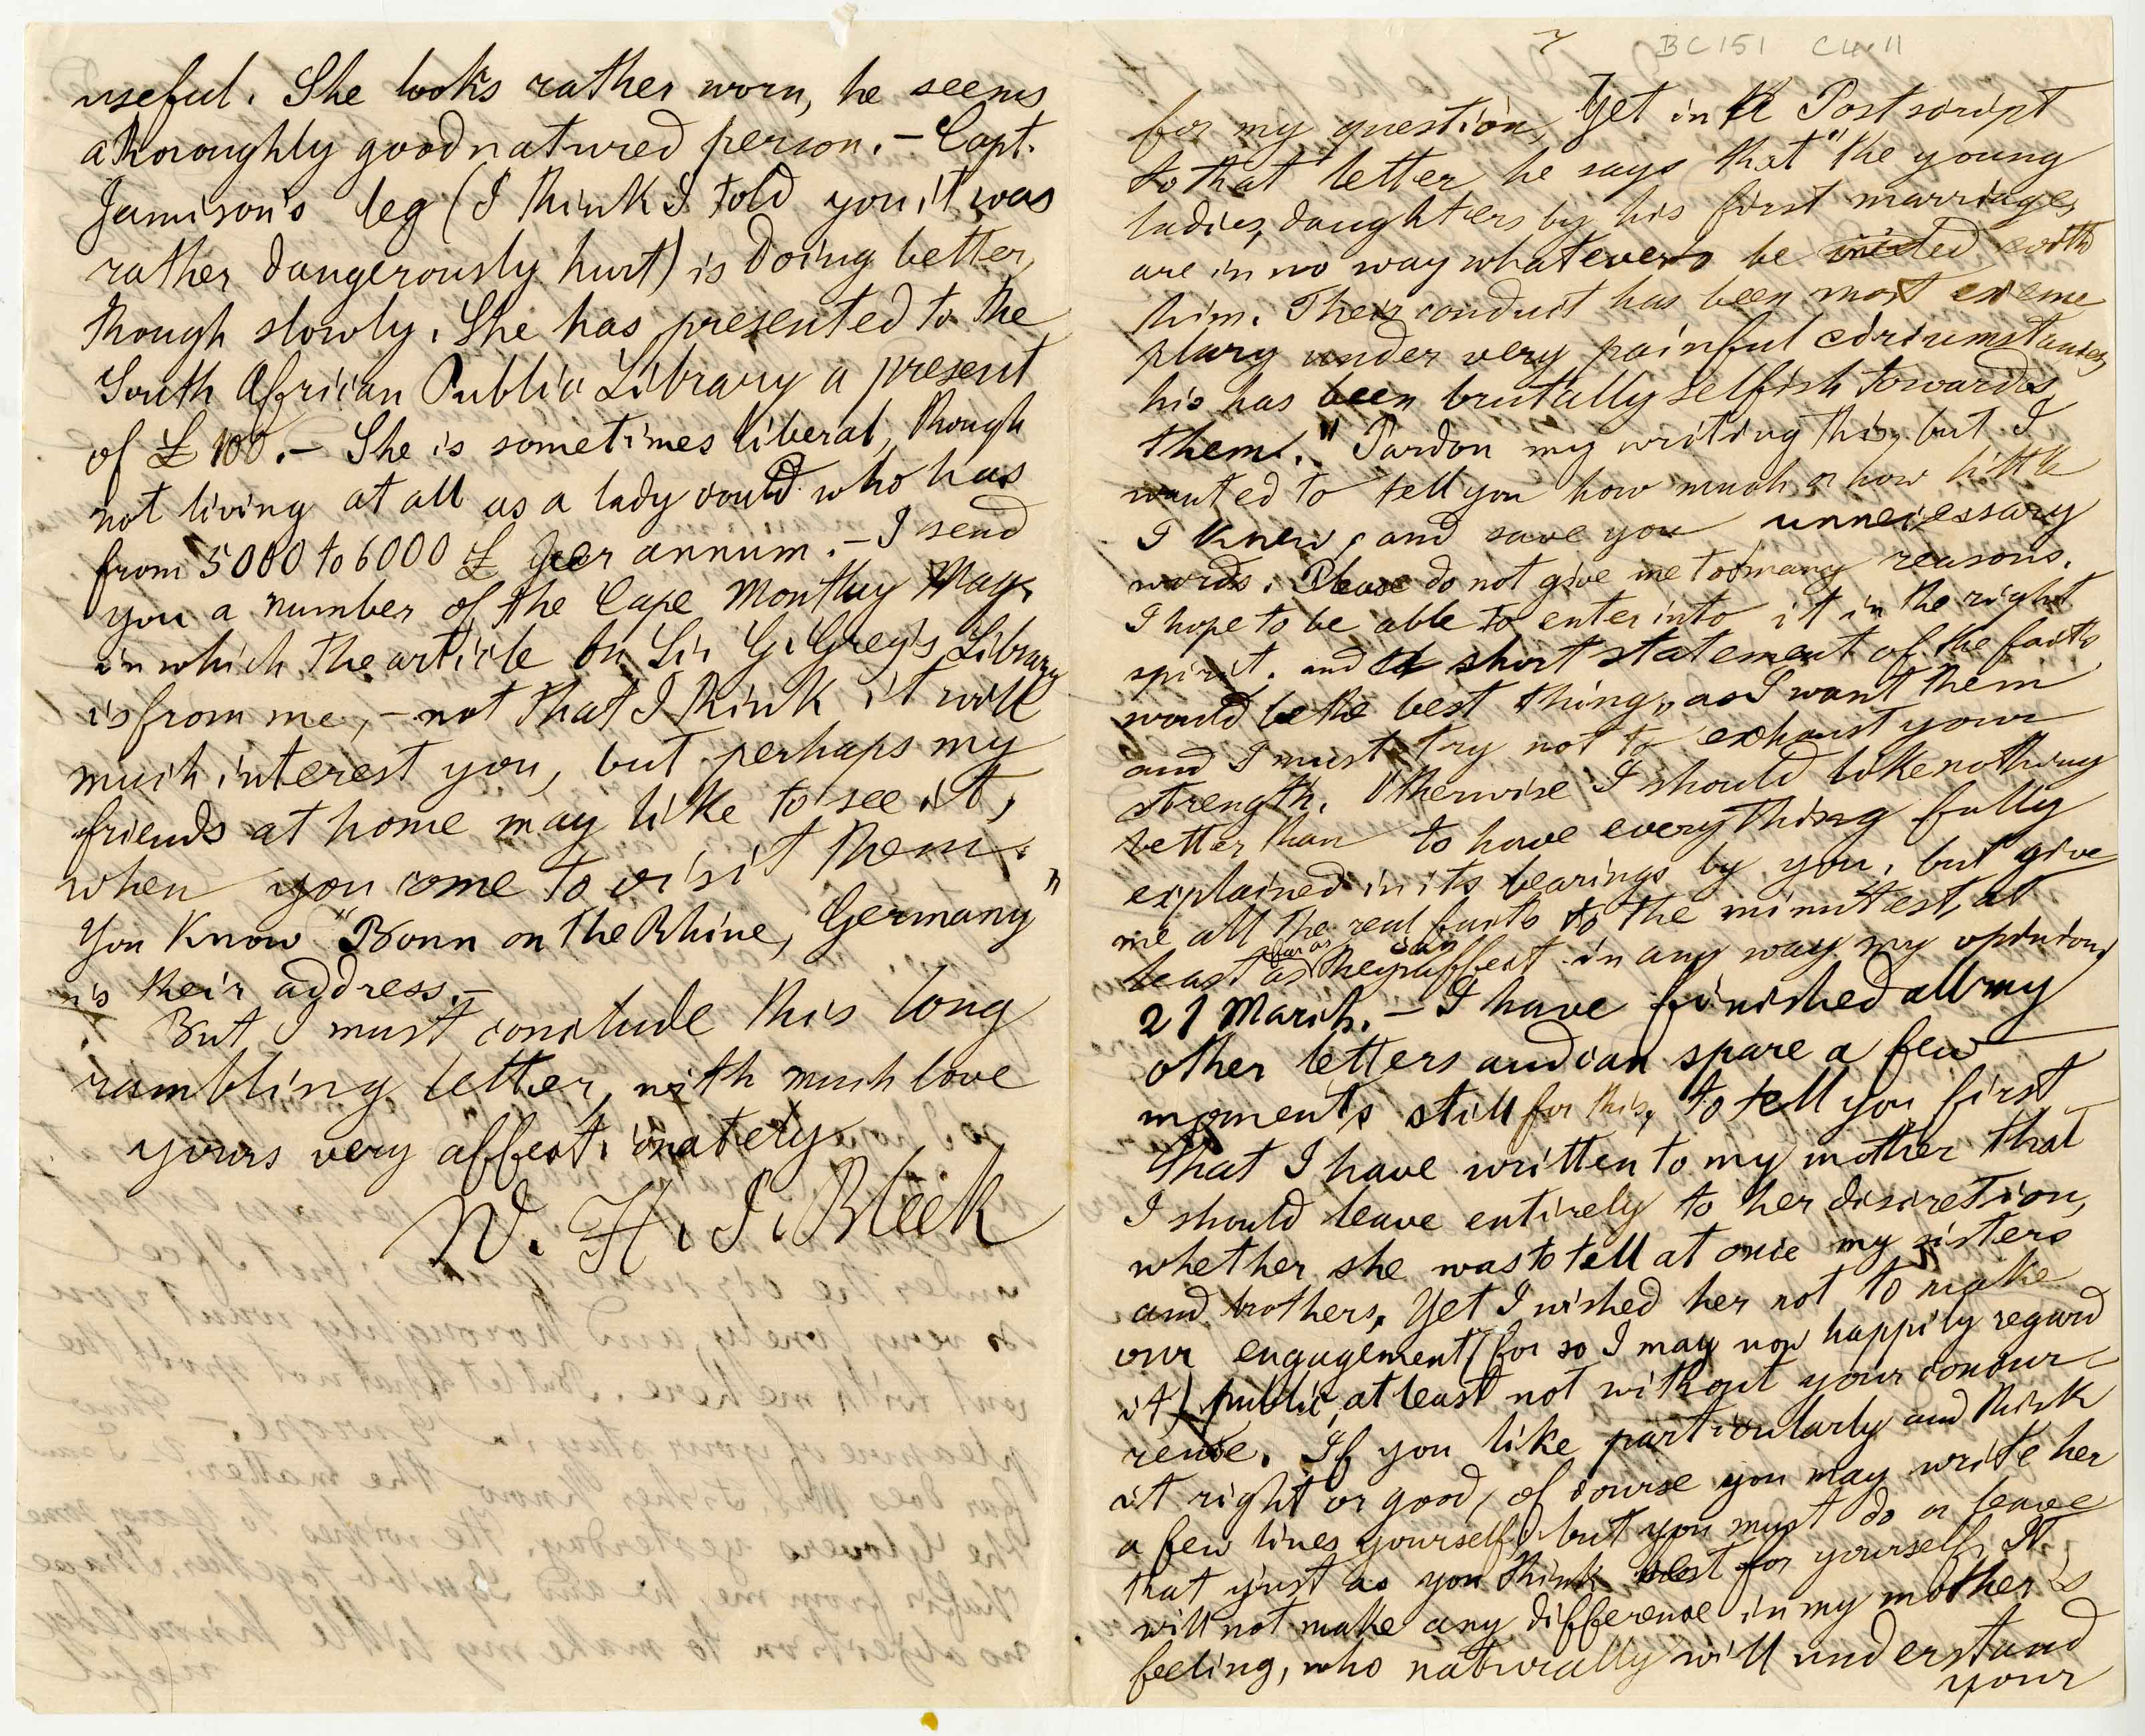 useful. She looks rather worn, he seems
a thoroughly goodnatured person. – Capt.
Jamison's leg (I think I told you it was
rather dangerously hurt) is doing better,
though slowly. She has presented to the
South African Public Library a present
of £ 100. – She is sometimes liberal, though
not living at all as a lady could who has
from 5000 to 6000 £ per annum. – I send
you a number of the Cape Monthly Mag.
in which the article on Sir G. Grey's Library
is from me, – not that I think it will
much interest you, but perhaps my
friends at home may like to see it,
when you come to visit them.
You know "Bonn on the Rhine, Germany"
is their address. –
But I must conclude this long
rambling letter, with much love
yours very affectionately
W. H. I. Bleek
7 BC151 C4.11
for my question, Yet in the Postscript
to that letter he says that "the young
ladies, daughters by his first marriage,
are in no way whatever to be with
him. Their conduct has been most exem
plary under very painful circumstances,
his has been brutally selfish towards
them." Pardon my writing this, but I
wanted to tell you how much or how little
I knew, and save you unnecessary
words. Please do not give me too many reasons.
I hope to be able to enter into it in the right
spirit. and a short statement of the facts
would be the best thing, as I want them
and I must try not to exhaust your
strength. Otherwise I should like nothing
better than to have everything fully
explained in its bearings by you, but give
me all the real facts to the minutest, at
least as far as they can affect in any way my opinion,
21 March. – I have finished all my
other letters and can spare a few
moments still for this, to tell you first
that I have written to my mother that
I should leave entirely to her discretion,
whether she was to tell at once my sisters
and brothers. Yet I wished her not to make
our engagement (for so I may now happily regard
it) public, at least not without your concur-
rence. If you like particularly and think
it right or good, of course you may write her
a few lines yourself, but you must do or leave
that just as you think best for yourself. It
will not make any difference in my mother's
feeling, who naturally will understand
your